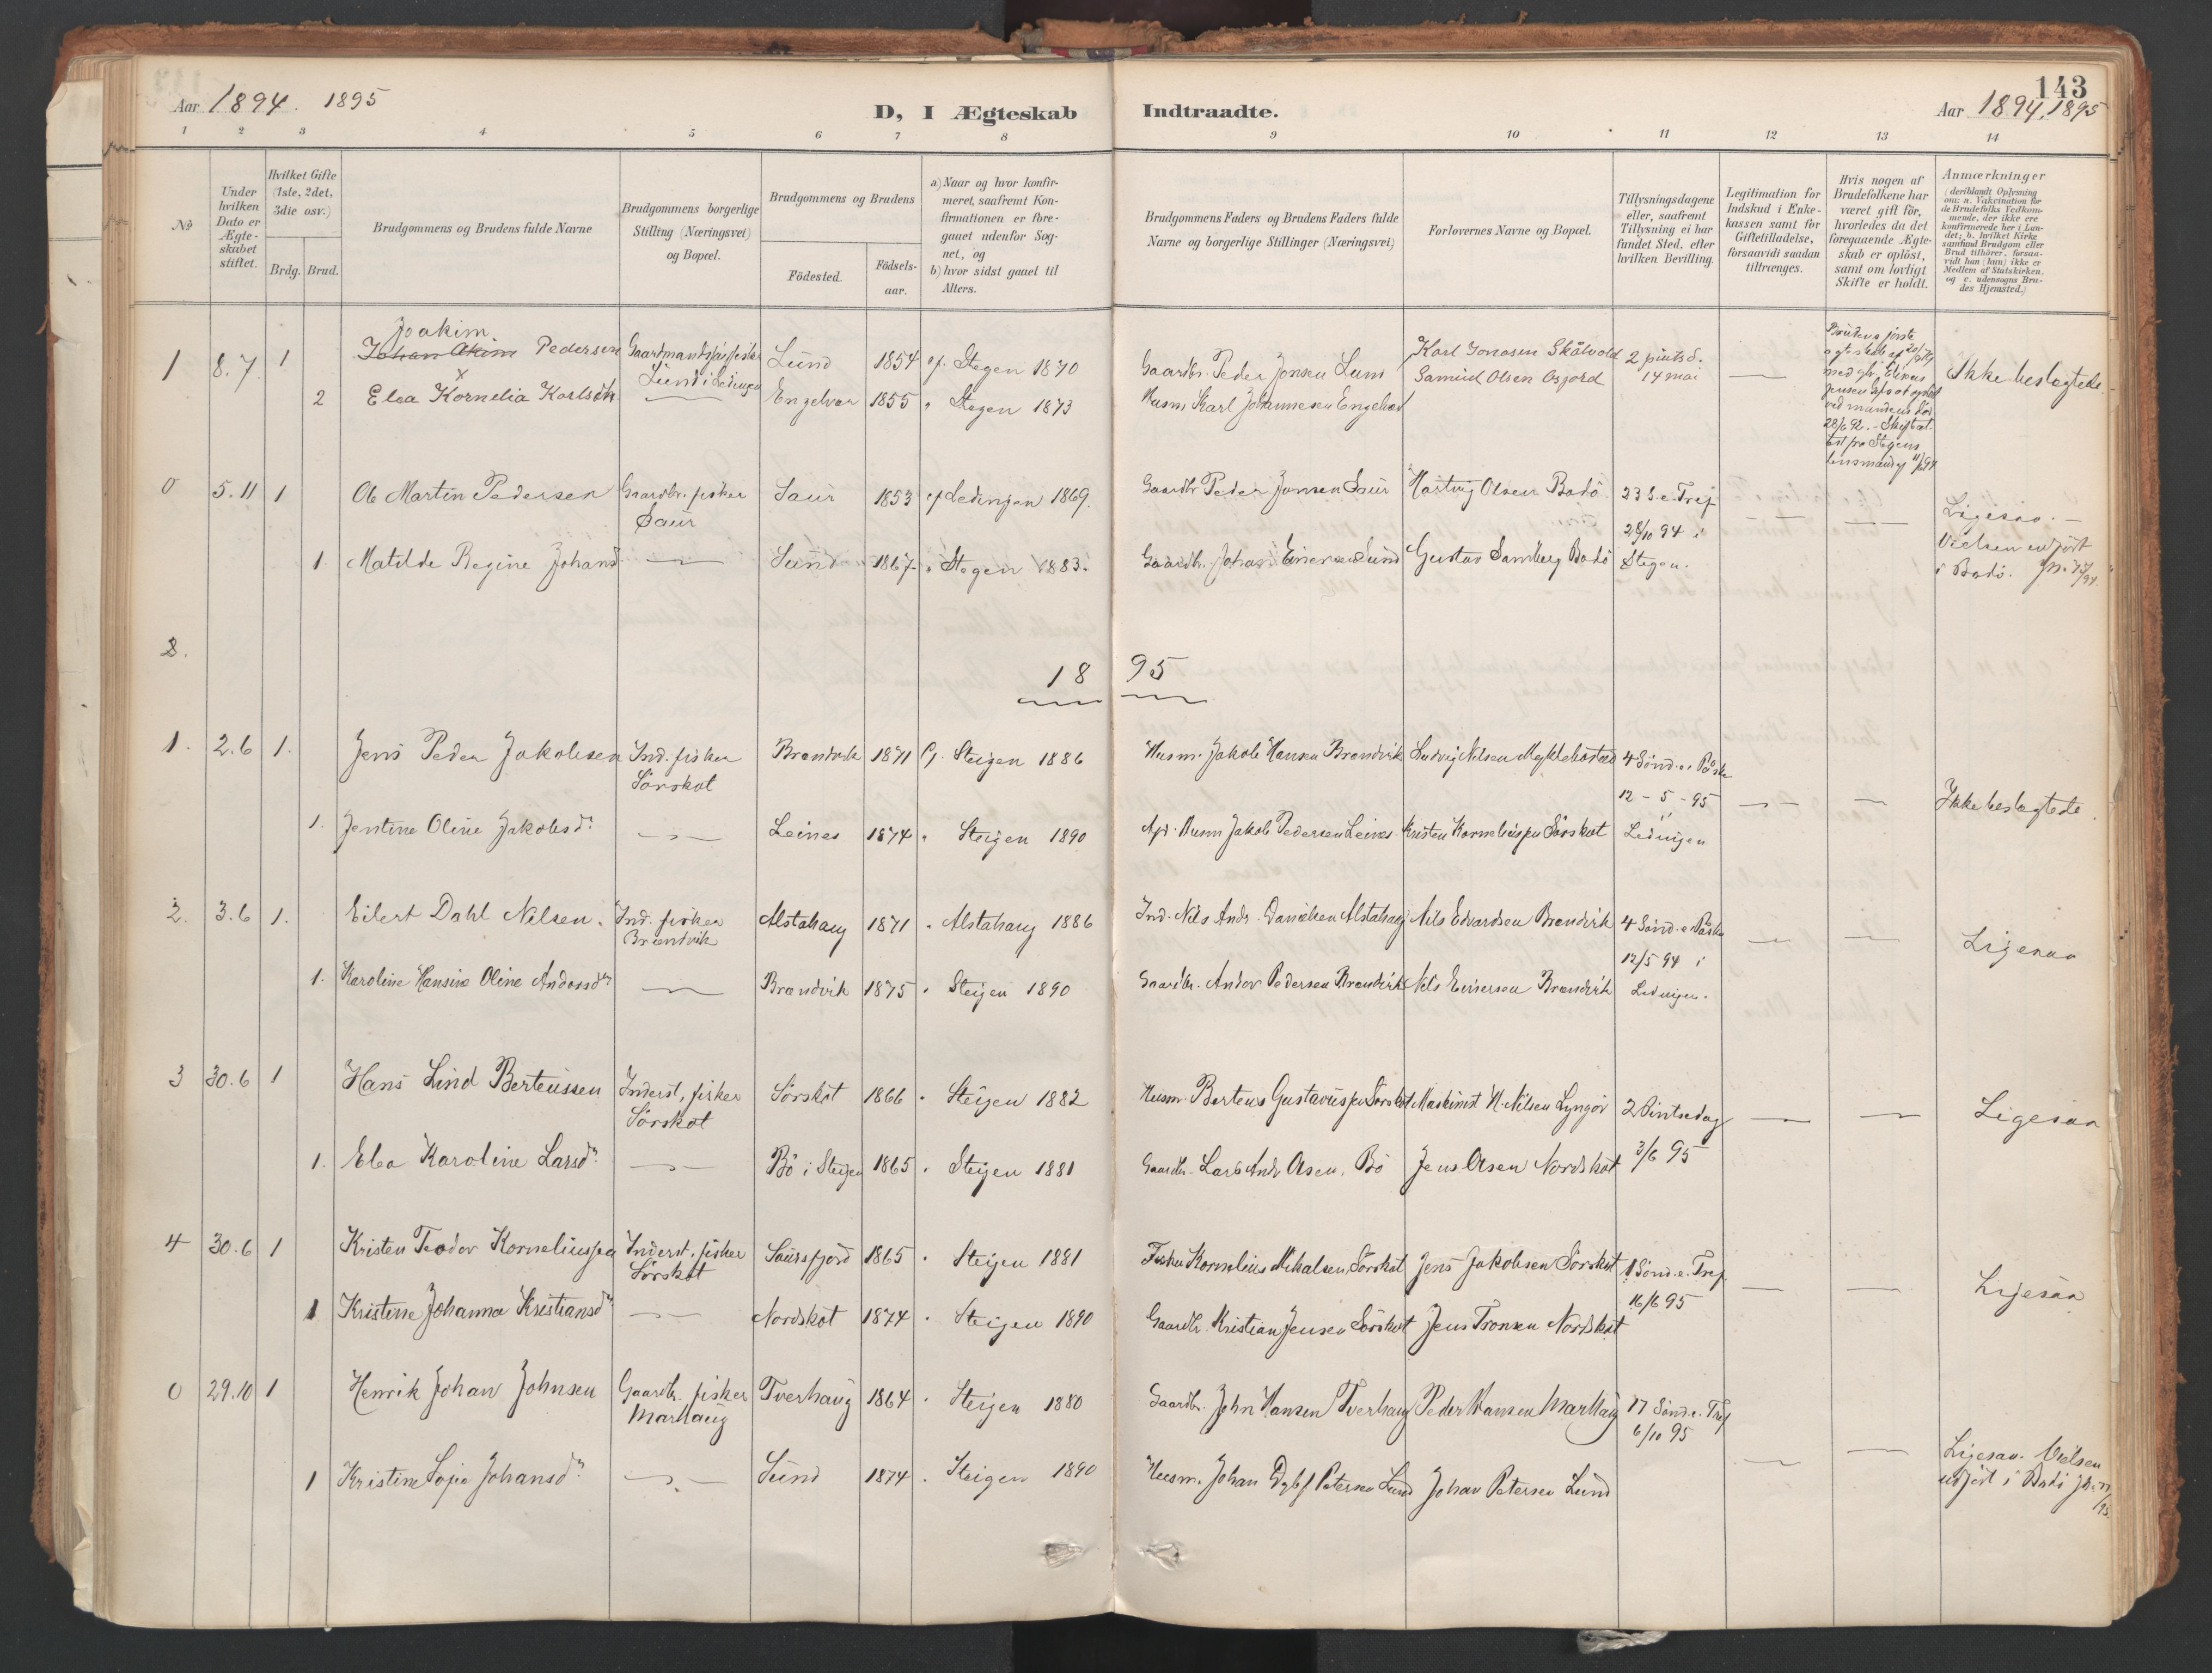 143
Aar 1894. 1895
D, I Ægteskab Indtraadte.
Aar 1894, 1895
1 2 3 4 5 6 7 8 9 10 11 12 13 14
No
Under hvilken Dato er Ægteskabet stiftet.
Hvilket Gifte (1ste, 2det, 3die osv.)
Brdg. Brud.
Brudgommens og Brudens fulde Navne
Brudgommens borgerlige Stilling (Næringsvei) og Bopæl.
Brudgommens og Brudens
Födested.
Födsels-aar.
a) Naar og hvor konfirmeret, saafremt Konfirmationen er foregaaet udenfor Sognet, og
b) hvor sidst gaaet til Alters.
Brudgommens Faders og Brudens Faders fulde Navne og borgerlige Stillinger (Næringsvei)
Forlovernes Navne og Bopæl.
Tillysningsdagene eller, saafremt Tillysning ei har fundet Sted, efter hvilken Bevilling.
Legitimation for Indskud i Enkekassen samt for Giftetilladelse, forsaavidt saadan tiltrænges.
Hvis nogen af Brudefolkene har været gift för, hvorledes da det foregaaende Ægteskab er oplöst, samt om lovligt Skifte er holdt.
Anmærkninger
(deriblandt Oplysning om: a. Vakcination for de Brudefolks Vedkommende, der ikke ere konfirmerede her i Landet; b. hvilket Kirkesamfund Brudgom eller Brud tilhörer, forsaavidt han (hun) ikke er Medlem af Statskirken, og c. udensogns Brudes Hjemsted.)
Joakim
1 8.7. 1 Johan Akim Pedersen Gaardmandss. fisker Lund 1854 ef. Stegen 1870 Gaardbr. Peder Jonsen Lund Karl Jonasen Skålvold 2 pintsd. Ikke beslægtede
Lund i Ledingen
2 Elea Kornelia Karlsdtr. Engelvær 1855 " Stegen 1873 Husm. Karl Johannesen Engelvær Samuel Olsen Osjord 14 mai
0 5.11 1 Ole Martin Pedersen Gaardbr. fisker Saur 1853 ef Ledingen 1869. Gaardbr Peder Jonsen Saur Hartvig Olsen Bodö 23 S. e. Tref Ligesaa. —
Saur 28/10 94 i
1 Matilde Regine Johansd. Lund 1867 " Stegen 1883. Gaardbr. Johan Einersen Lund Gustav Samberg Bodö Stegen. Vielsen udfört i Bodö.
2.
18 95
1. 2.6 1. Jens Peder Jakobsen Ind. fisker Brændvik 1871 Ef. Steigen 1886 Husm. Jakob Hansen Brændvik Ludvig Nilsen Myklebostad 4 Sönd. e. Påske
Sörskot 12 - 5 - 95 Ikke beslegtede.
1. Jentine Oline Jakobsd. Leines 1874 " Steigen 1890 Husm Jakob Pedersen Leines Kristen Korneliussen Sörskot Ledingen
2. 3.6 1. Eilert Dahl Nilsen. Ind. fisker Alstahaug 1871 " Alstahaug 1886 Ind. Nils Andr. Danielsen Alstahaug Nils Edvardsen Brændvik 4 Sönd. e. Påske Ligesaa
Brændvik 12/5 94 i
1. Karoline Hansine Oline Andorsdr. Brændvik 1875 " Steigen 1890 Gaardbr. Andor Pedersen Brændvik Nils Einersen Brændvik Ledingen.
3 30.6 1 Hans Lind Berteussen Inderst, fisker Sörskot 1866 " Steigen 1882 Husm. Berteus Gustavussen Sörskot Maskinist N. Nilsen Lyngör 2 Pintsedag Ligesaa
Sörskot 3/6 95
1. Elea Karoline Larsdr. Bö i Steigen 1865 " Steigen 1881 Gaardbr. Lars Andr. Olsen, Bö Jens Olsen Nordskot
4 30.6 1 Kristen Teodor Korneliussen Inderst. fisker Saursfjord 1865 " Steigen 1881 Fisker Kornelius Mikalsen, Sörskot Jens Jakobsen Sörskot 1 Sönd. e. Tref Ligesaa
Sörskot 16/6 95
1 Kristine Johanna Kristiansdr. Nordskot 1874 " Steigen 1890 Gaardbr. Kristian Jensen Sörskot Jens Tronsen Nordskot
0 29.10 1 Henrik Johan Johnsen Gaardbr. fisker Tverhaug 1864 " Steigen 1880 Gaardbr. John Hansen Tverhaug Peder Hansen Marhaug 17 Sönd. e. Tref
Marhaug 6/10 95
1 Kristine Sofie Johansdr. Lund 1874 " Steigen 1890 Husm. Johan Petersen Lund Johan Petersen Lund Ligesaa. Vielsen udfört i Bodö